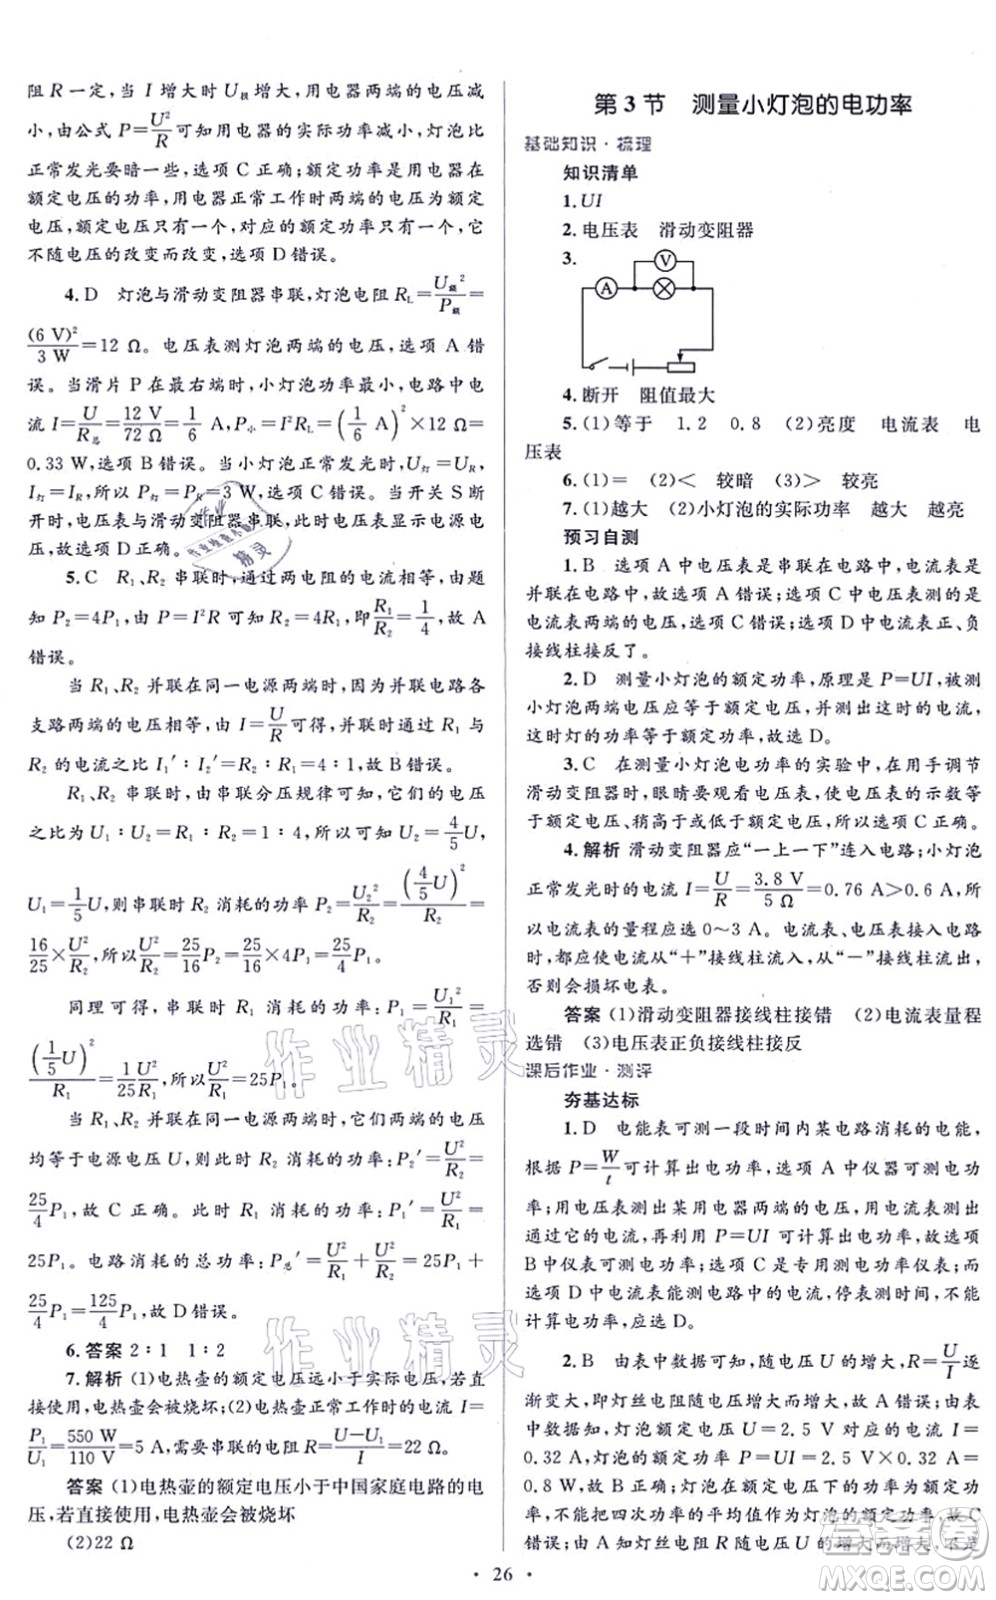 阻 R 一定，当 I 增大时 U额增大，用电器两端的电压减
小，由公式 P=U²/R 可知用电器的实际功率减小，灯泡比
正常发光要暗一些，选项 C 正确；额定功率是用电器在
额定电压下的功率，用电器正常工作时两端的电压为额定
电压，额定电压只有一个，对应的额定功率只有一个，它
不随电压的改变而改变，选项 D 错误。
4. D　灯泡与滑动变阻器串联，灯泡电阻 RL=U额²/P额=
(6 V)²/3 W=12 Ω。电压表测灯泡两端的电压，选项 A 错
误。当滑片 P 在最右端时，小灯泡功率最小，电路中电
流 I=U/R总=12 V/72 Ω=1/6 A，P小=I²RL=(1/6 A)²×12 Ω=
0.33 W，选项 B 错误。当小灯泡正常发光时，U灯=UR，
I灯=IR，所以 P灯=PR=3 W，选项 C 错误。当开关 S 断
开时，电压表与滑动变阻器串联，此时电压表显示电源电
压，故选项 D 正确。
5. C　R₁、R₂ 串联时，通过两电阻的电流相等，由题
知 P₂=4P₁，由 P=I²R 可知 R₂=4R₁，即R₁/R₂=1/4，故 A
错误。
当 R₁、R₂ 并联在同一电源两端时，因为并联电路各
支路两端的电压相等，由 I=U/R 可得，并联时通过 R₁ 与
R₂ 的电流之比 I₁′∶I₂′=R₂∶R₁=4∶1，故 B 错误。
R₁、R₂ 串联时，由串联分压规律可知，它们的电压
之比为 U₁∶U₂=R₁∶R₂=1∶4，所以可知 U₂=4/5U，
U₁=1/5U，则串联时 R₂ 消耗的功率 P₂=U₂²/R₂=(4/5U)²/R₂=
16/25×U²/R₂，所以，U²/R₂=25/16P₂=25/16×4P₁=25/4P₁。
同理可得，串联时 R₁ 消耗的功率：P₁=U₁²/R₁=
(1/5U)²/R₁=1/25 U²/R₁，所以U²/R₁=25P₁。
当 R₁、R₂ 并联在同一电源两端时，它们两端的电压
均等于电源电压 U，则此时 R₂ 消耗的功率：P₂′=U²/R₂=
25/4P₁，故 C 正确。此时 R₁ 消耗的功率：P₁′=U²/R₁=
25P₁。电路消耗的总功率：P总=U²/R₁+U²/R₂=25P₁+
25/4P₁=125/4P₁，故 D 错误。
6. 答案 2∶1　1∶2
7. 解析 (1)电热壶的额定电压远小于实际电压，若直
接使用，电热壶会被烧坏；(2)电热壶正常工作时的电流 I=
P₁/U₁=550 W/110 V=5 A，需要串联的电阻 R=U−U₁/I=22 Ω。
答案 (1)电热壶的额定电压小于中国家庭电路的电
压，若直接使用，电热壶会被烧坏
(2)22 Ω
第 3 节　测量小灯泡的电功率
基础知识·梳理
知识清单
1. UI
2. 电压表　滑动变阻器
3.
V
A
4. 断开　阻值最大
5. (1)等于　1.2　0.8　(2)亮度　电流表　电
压表
6. (1)=　(2)<　较暗　(3)>　较亮
7. (1)越大　(2)小灯泡的实际功率　越大　越亮
预习自测
1. B　选项 A 中，电压表是串联在电路中，电流表是
并联在电路中，故选项 A 错误；选项 C 中电压表测的是
电流表两端的电压，选项 C 错误；选项 D 中电流表正、负
接线柱接反了。
2. D　测量小灯泡的额定功率，原理是 P=UI，被测
小灯泡两端电压应等于额定电压，并测出这时的电流，
这时灯的功率等于额定功率，故选 D。
3. C　在测量小灯泡电功率的实验中，在用手调节
滑动变阻器时，眼睛要观看电压表，使电压表的示数等于
额定电压、稍高于额定电压、稍低于额定电压。所以 C 正确。
4. 解析 滑动变阻器应“一上一下”连入电路；小灯泡
正常发光时的电流 I=U/R=3.8 V/5 Ω=0.76 A>0.6 A，所
以电流表的量程应选 0～3 A。电流表、电压表接入电路
时，都应使电流从“＋”接线柱流入，从“－”接线柱流出，
否则会损坏电表。
答案 (1)滑动变阻器接线柱接错　(2)电流表量程
选错　(3)电压表正负接线柱接反
课后作业·测评
夯基达标
1. D　电能表可测一段时间内某电路消耗的电能，
根据 P=W/t可计算出电功率，选项 A 中仪器可测电功
率；用电压表测出某用电器两端的电压，用电流表测出
通过它的电流，根据 P=UI 可计算出它的电功率，选项
B 中器材可测电功率；选项 C 是测电功率仪表；而选项
D 中，电流表能测电路中的电流，停表测时间，不能
计算电功率，故应选 D。
2. B　由表中数据可知，随电压 U 的增大，R=U/I逐
渐变大，即灯丝电阻随电压增大而增大，故选项 A 错误；
表中数据，灯泡额定电压 U=2.5 V 对应的电流 I=
0.32 A，灯泡的额定功率 P=UI=2.5 V×0.32 A=
0.8 W，故选项 B 正确；灯泡在额定电压下的功率为额定
功率，把四次功率的平均值作为灯泡的额定功率是错误的，
故选项 C 错误；由 A 知灯丝电阻 R 随电压 U 的增大而增大，不是
• 26 •
作业精灵
作业精灵
精灵
答案圈
MXQE.COM